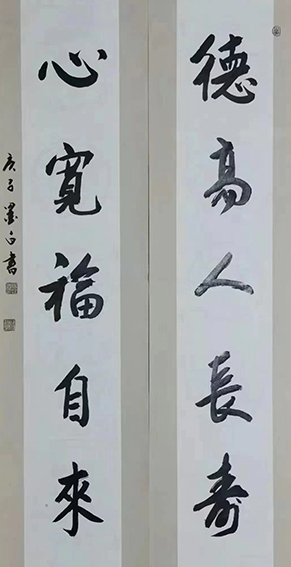 德高人長壽
心寬福自來
庚子墨白書